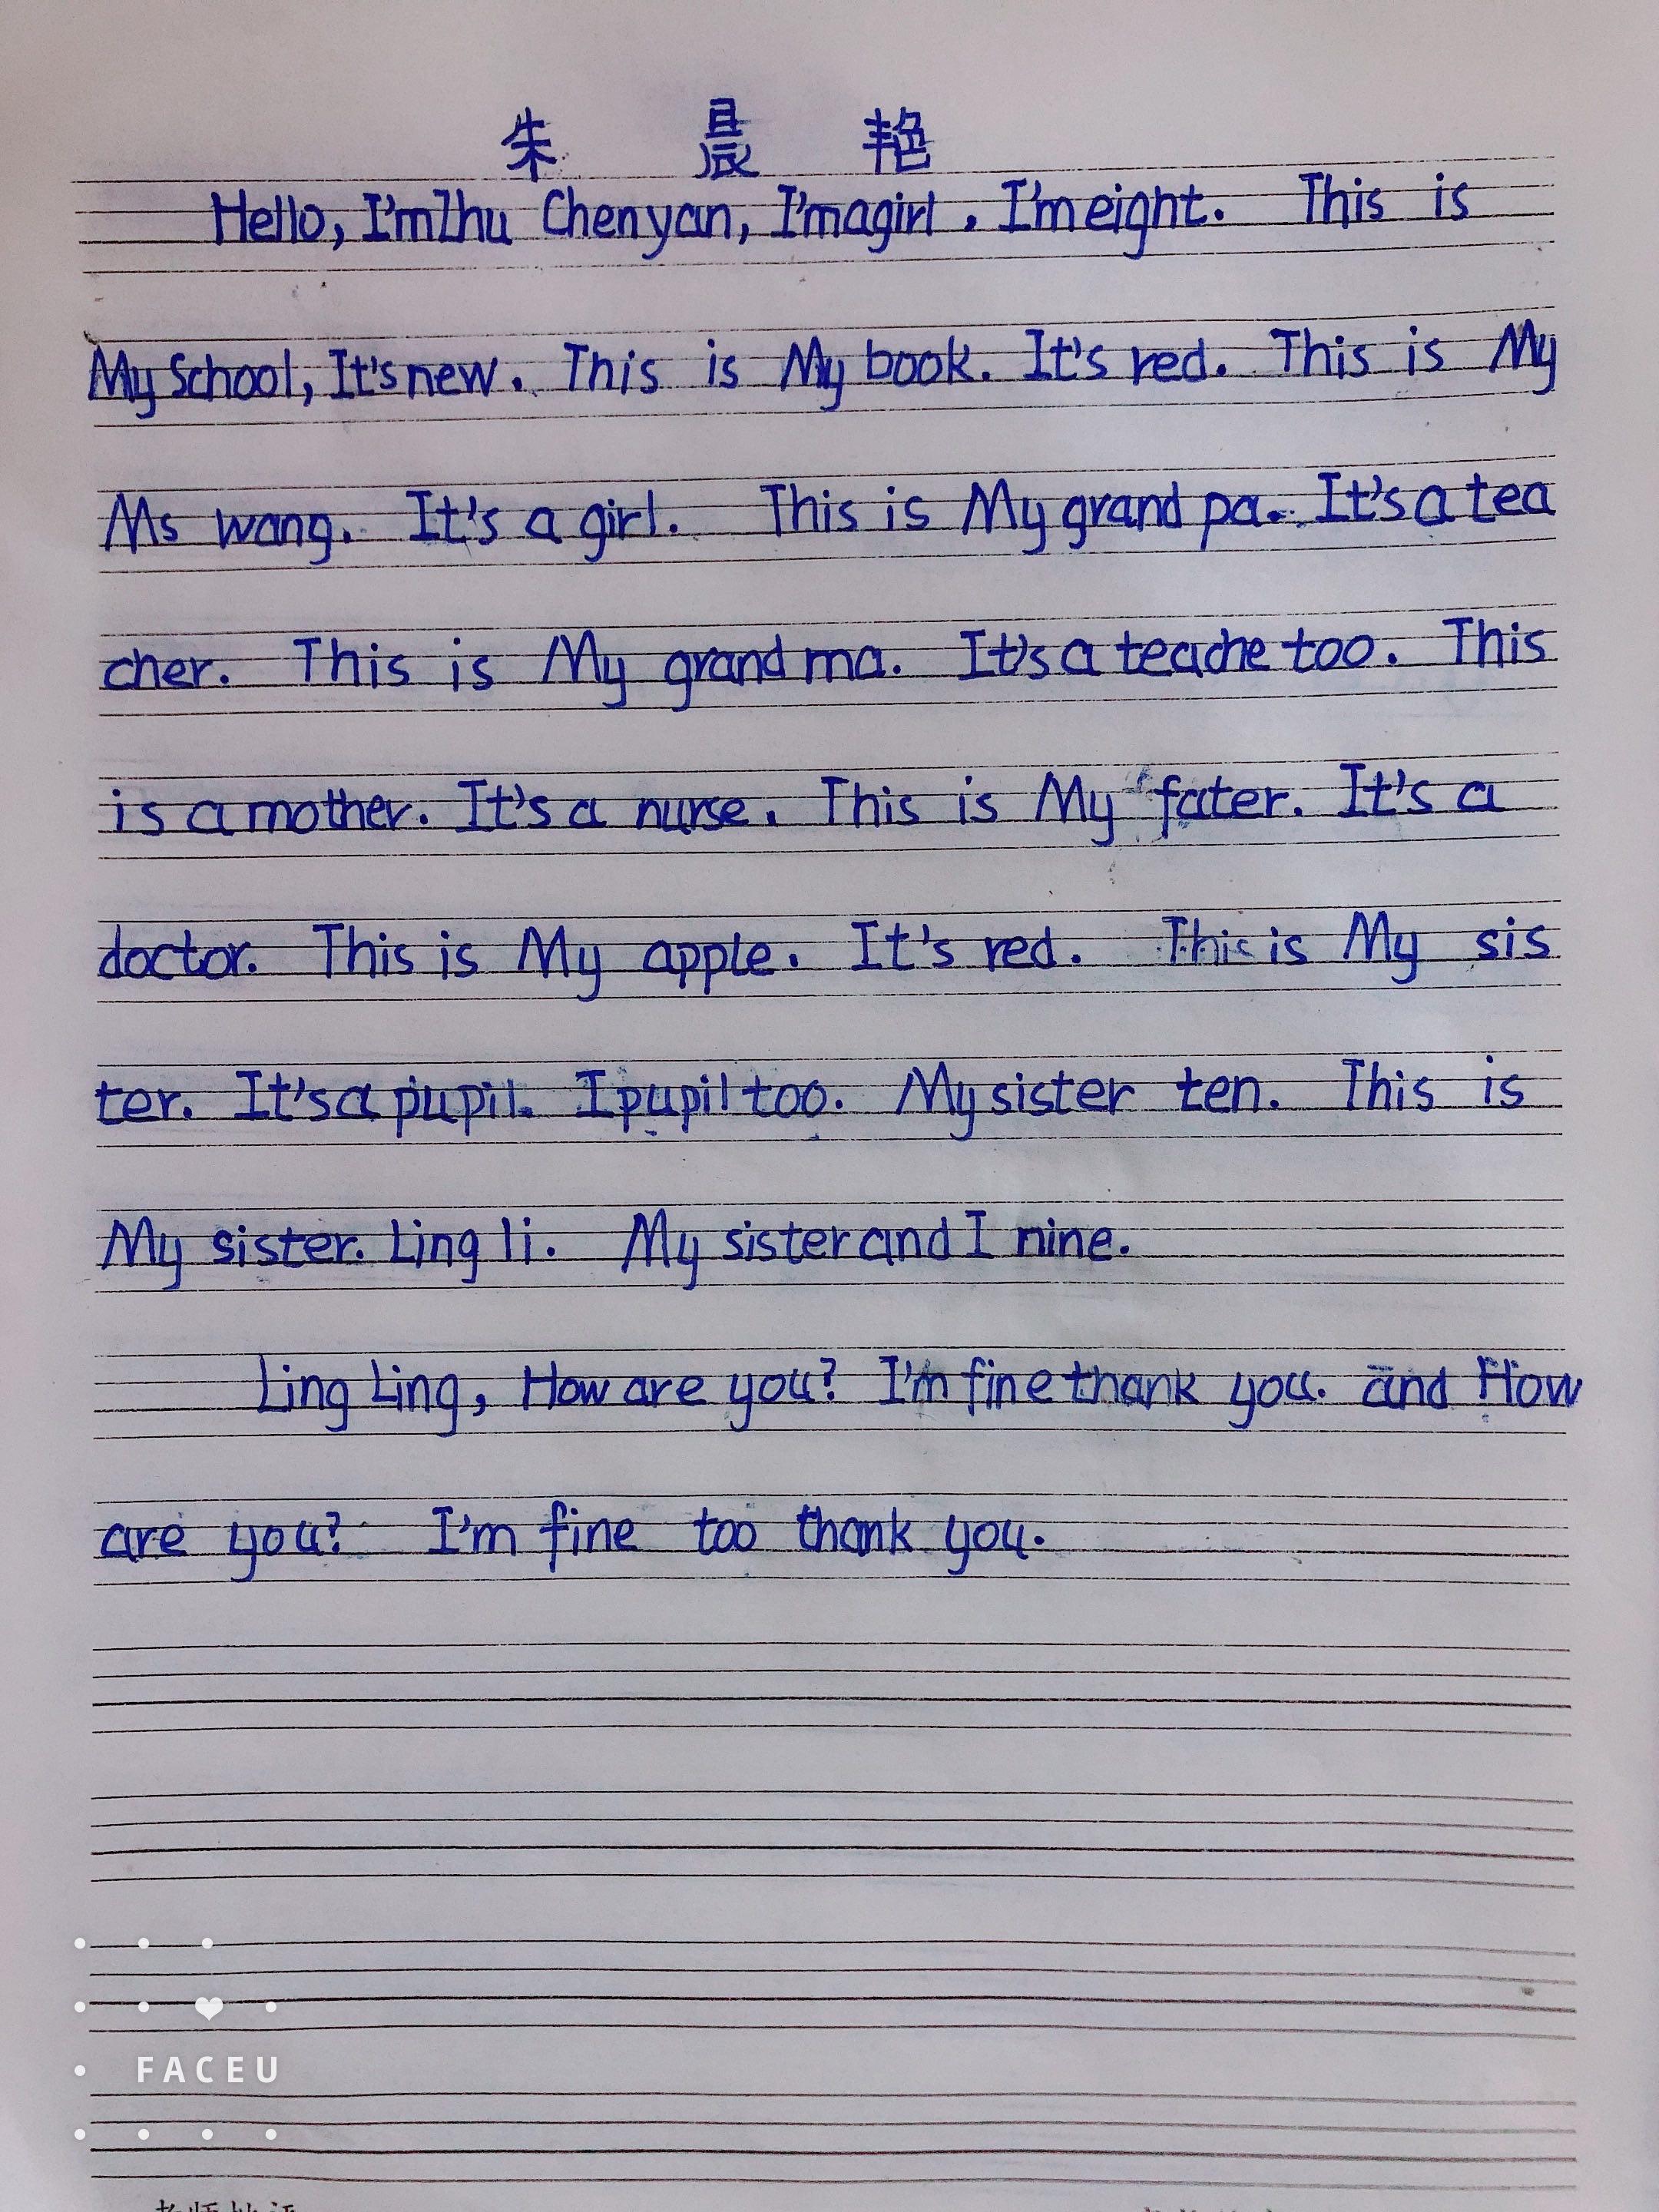 朱 晨 艳
Hello, I'm Zhu Chenyan, I'm a girl, I'm eight. This is
My School, It's new. This is My book. It's red. This is My
Ms wang. It's a girl. This is My grand pa. It's a tea
cher. This is My grand ma. It's a teache too. This
is a mother. It's a nurse. This is My fater. It's a
doctor. This is My apple. It's red. This is My sis
ter. It's a pupil. I pupil too. My sister ten. This is
My sister. Ling li. My sister and I nine.
Ling Ling, How are you? I'm fine thank you. and How
are you? I'm fine too thank you.
FACEU